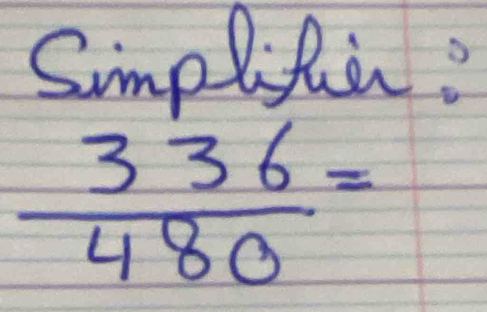 Simplifier :
336 =
480